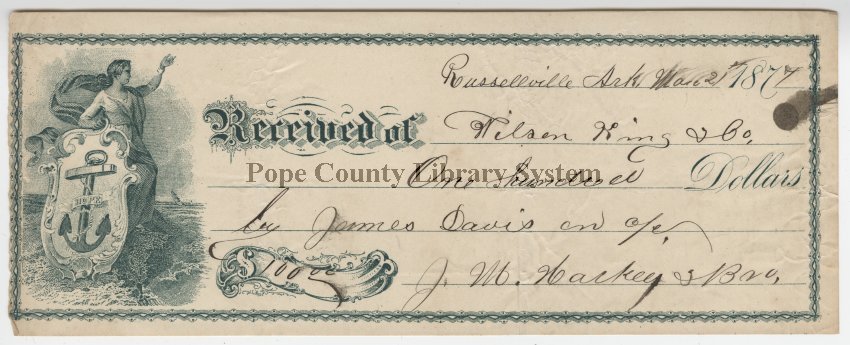 Russellville Ark Mar 21st 1877
Received of Wilson King & Co.
One Hundred Dollars
Pope County Library System
by James Davis on a/c
$100 00 J. M. Harkey & Bro.
HOPE